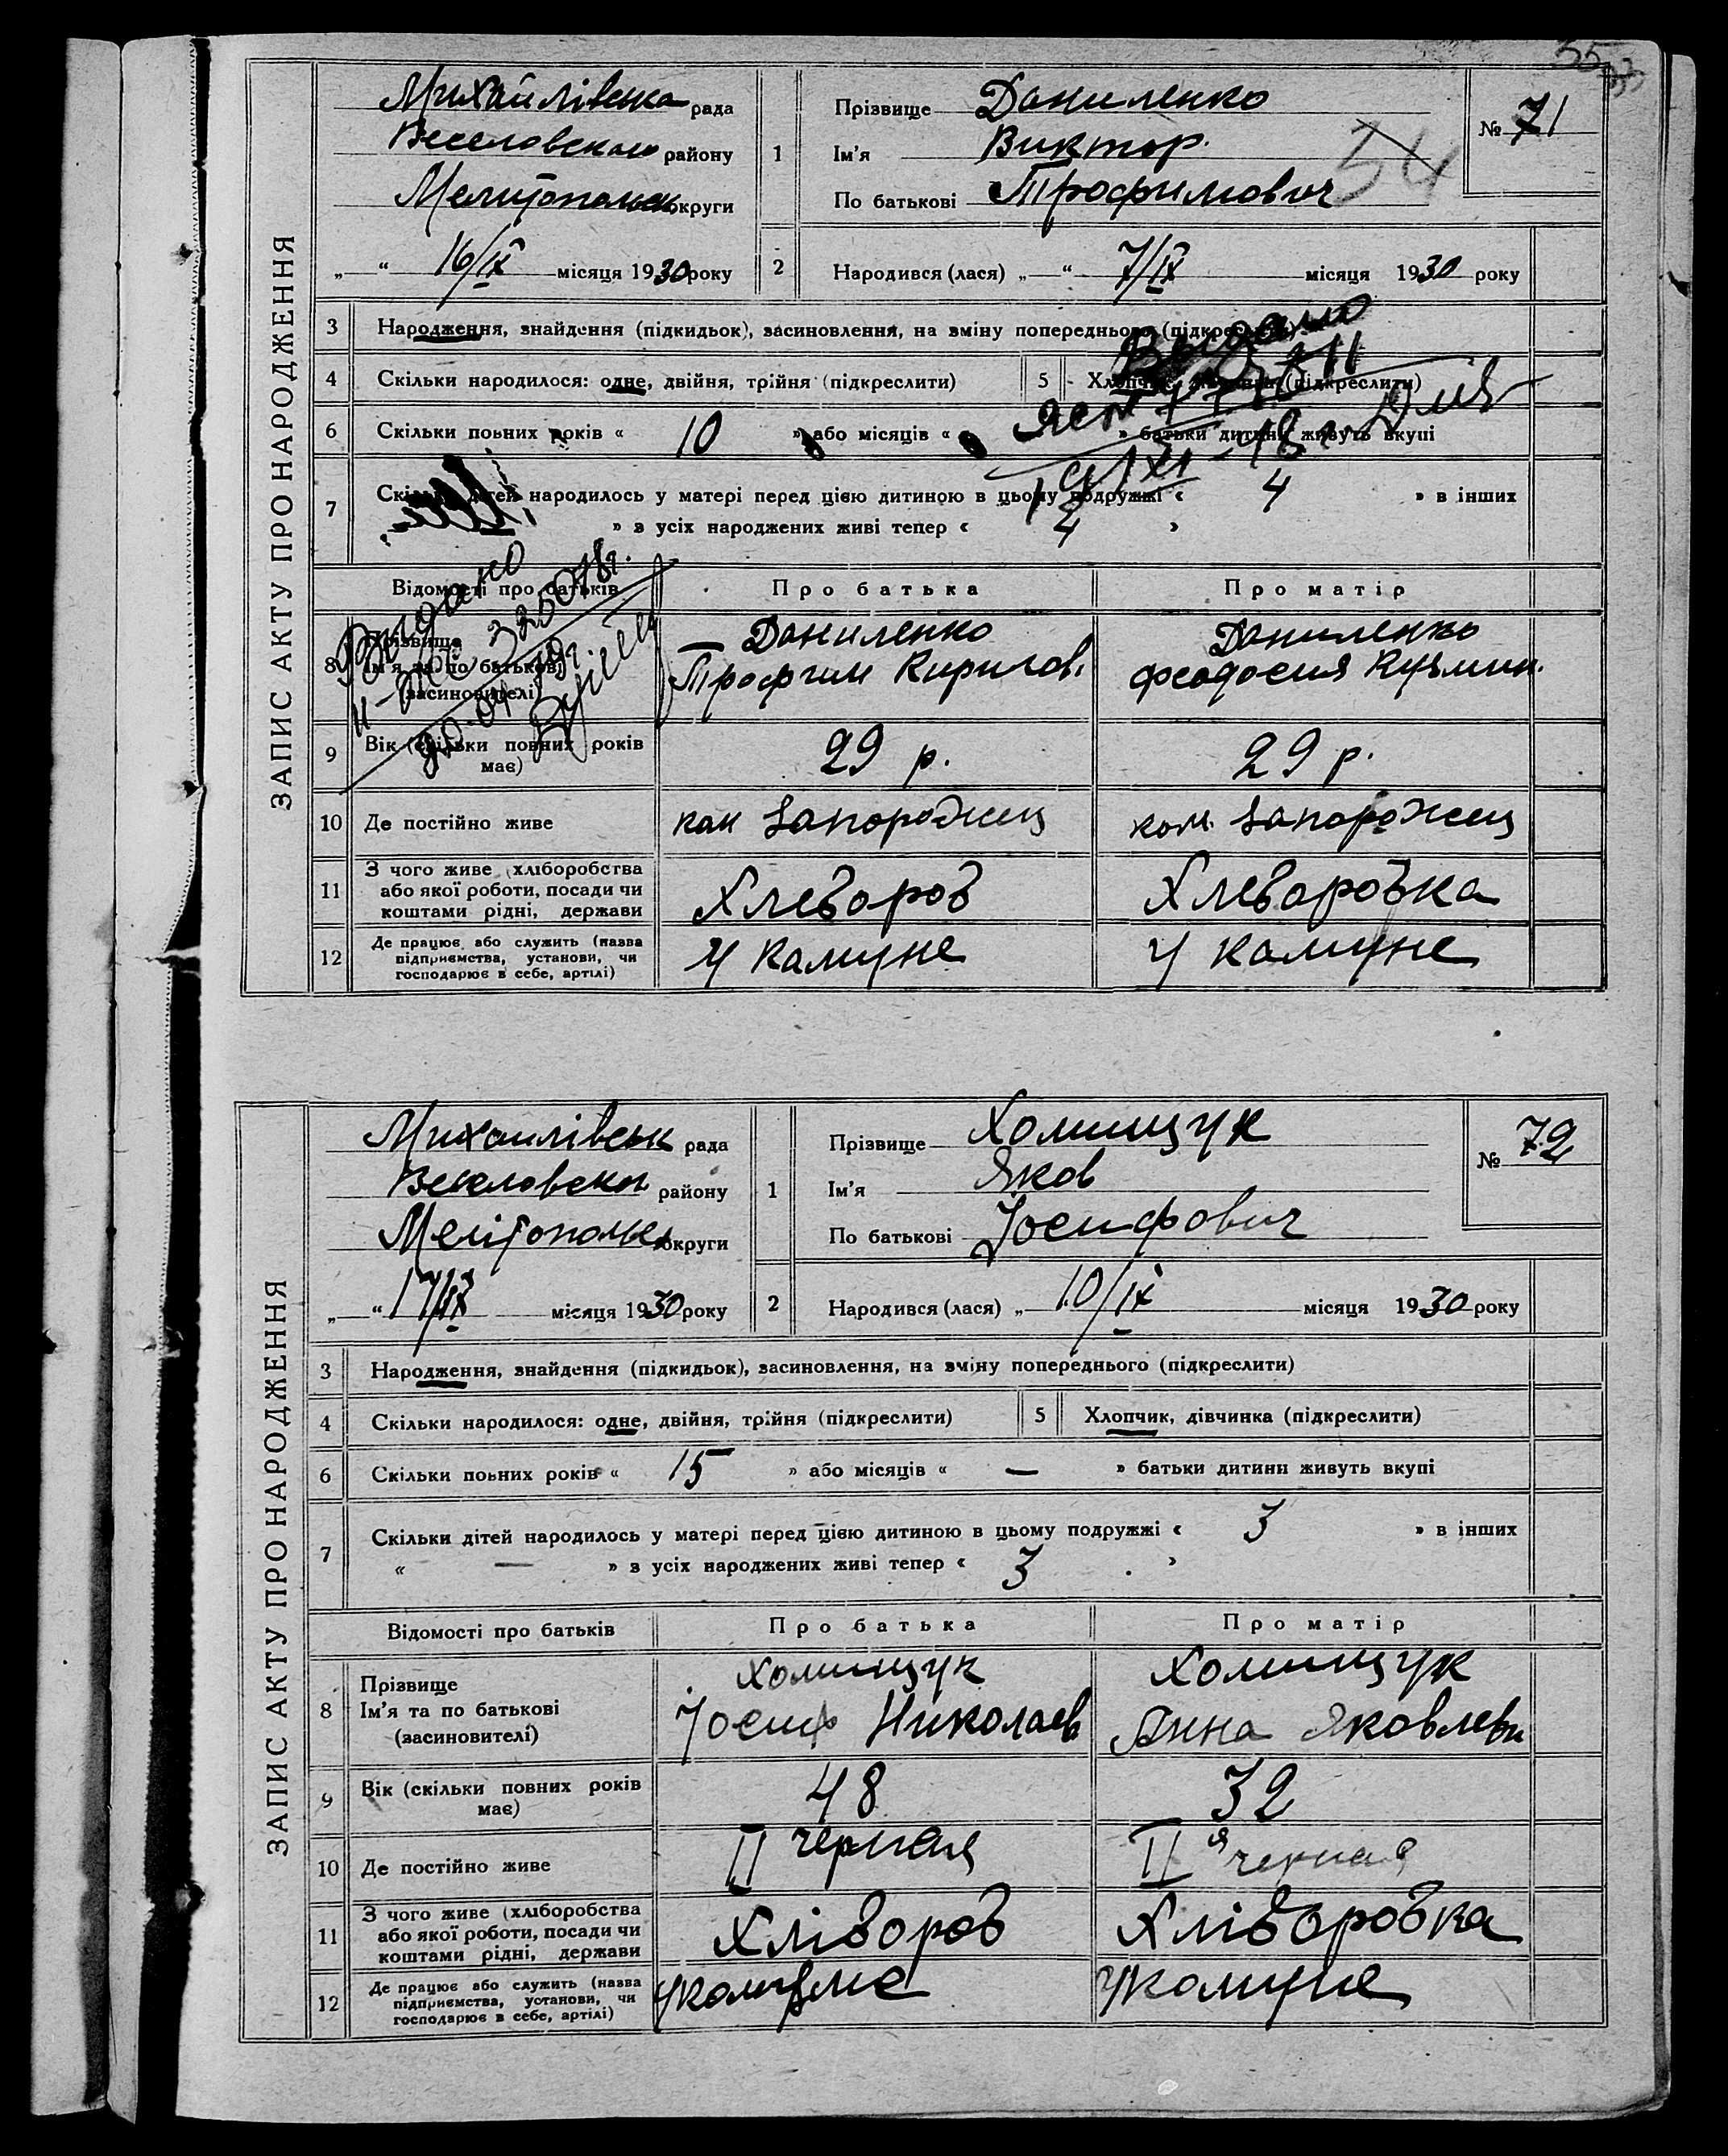 55
ЗАПИС АКТУ ПРО НАРОДЖЕННЯ
Михайлівська рада
Веселовского району
Мелитопольск округи
„ “ 16/IX місяця 1930 року
1
Прізвище Даниленко
Ім'я Виктор.
По батькові Трофимович
№ 71
54
2 Народився (лася) „ “ 7/IX місяця 1930 року
3 Народження, знайдення (підкидьок), засиновлення, на зміну попереднього (підкреслити)
4 Скільки народилося: одне, двійня, трійня (підкреслити)
5 Хлопчик, дівчинка (підкреслити)
6 Скільки повних років « 10 » або місяців « » батьки дитини живуть вкупі
7 Скільки дітей народилось у матері перед цією дитиною в цьому подружжі « 4 » в інших
» з усіх народжених живі тепер « 4 »
Выдано
Відомості про батьків
Про батька
Про матір
8 Прізвище
Ім'я та по батькові
(засиновителі)
Даниленко
Трофим Кирилов.
Даниленко
Феодосия Кузьмин.
9 Вік (скільки повних років має)
29 р.
29 р.
10 Де постійно живе
ком Запорожец
ком. Запорожец
11 З чого живе (хліборобства
або якої роботи, посади чи
коштами рідні, держави
Хлебороб
Хлеборобка
12 Де працює або служить (назва
підприємства, установи, чи
господарює в себе, артілі)
У Камуне
У Камуне
ЗАПИС АКТУ ПРО НАРОДЖЕННЯ
Михаилівськ рада
Веселовски району
Мелітопольс округи
„ “ 17/IX місяця 1930 року
1
Прізвище Хомищук
Ім'я Яков
По батькові Іосифович
№ 72
2 Народився (лася) „ 10/IX місяця 1930 року
3 Народження, знайдення (підкидьок), засиновлення, на зміну попереднього (підкреслити)
4 Скільки народилося: одне, двійня, трійня (підкреслити)
5 Хлопчик, дівчинка (підкреслити)
6 Скільки повних років « 15 » або місяців « — » батьки дитини живуть вкупі
7 Скільки дітей народилось у матері перед цією дитиною в цьому подружжі « 3 » в інших
« — » з усіх народжених живі тепер « 3 »
Відомості про батьків
Про батька
Про матір
8 Прізвище
Ім'я та по батькові
(засиновителі)
Хомищук
Іосиф Николаев
Хомищук
Анна Яковлевн
9 Вік (скільки повних років має)
48
32
10 Де постійно живе
II черная
II я черная
11 З чого живе (хліборобства
або якої роботи, посади чи
коштами рідні, держави
Хлібороб
Хліборобка
12 Де працює або служить (назва
підприємства, установи, чи
господарює в себе, артілі)
У комуне
У комуне